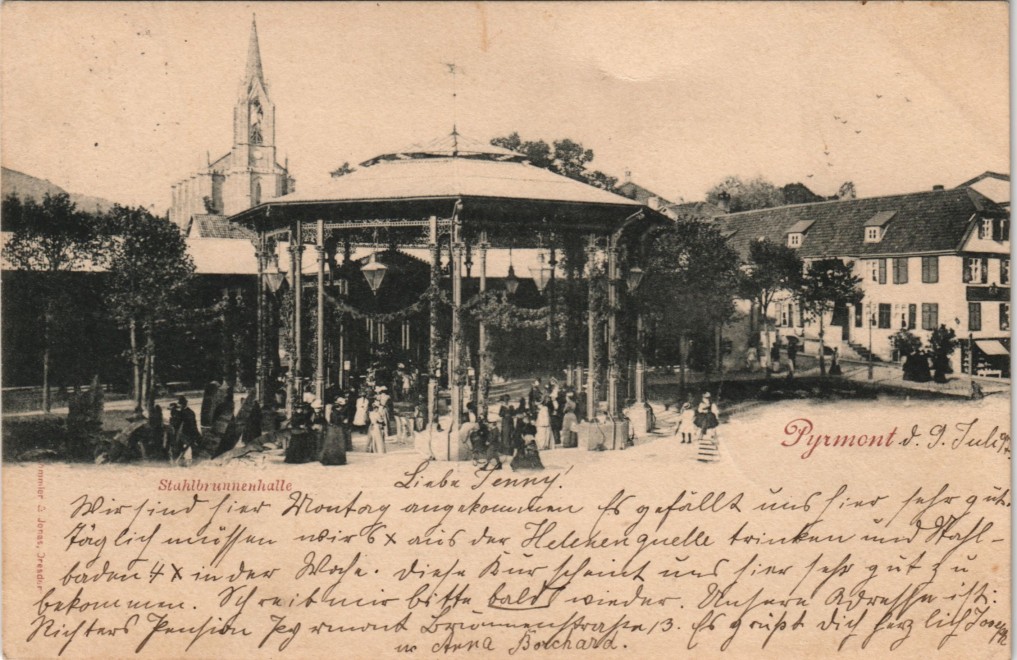 Pyrmont d. 9. Juli 97.
Stahlbrunnenhalle
Liebe Jenny!
Wir sind hier Montag angekommen Es gefällt uns hier sehr gut.
Täglich müssen wir 6 x aus der Helenenquelle trinken und Stahl-
baden 4 x in der Woche. Diese Kur scheint uns hier sehr gut zu
bekommen. Schreib mir bitte bald wieder. Unsere Adresse ist:
Richters Pension Pyrmont Brunnenstraße 13. Es grüßt Dich herzlich
u. Anna Borchard.
Jonas, Dresden